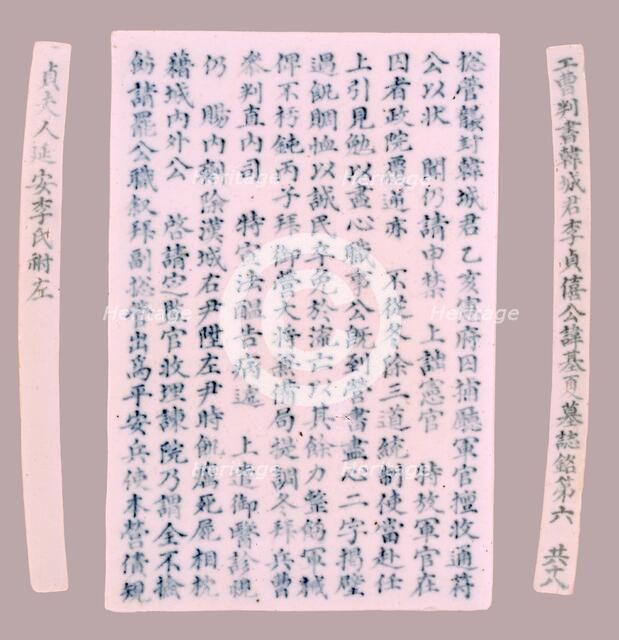 工曹判書韓城君李貞僖公諱基夏墓誌銘第六 共十八
捴管襲封韓城君乙亥府因捕廳軍官擅收通符
公以狀 聞仍請由禁 上詰憲官 特放軍官在
囚者政院覆逆亦 不從冬除三道統制使當赴任
上引見勉以盡心職事公旣到營書盡心二字揭壁
遇飢賙恤以誠民幸免於流亡以其餘力整飭軍械
俾不朽鈍丙子拜御營大將兼備局提調冬拜兵曹
參判直內司 特宣法醞告病遞 上遣御醫診視
仍 賜內劑除漢城右尹陞左尹時飢死屍相枕
藉城內外公 啓請定監官收埋諫院乃謂全不檢
飭請罷公職叙拜副捴管出爲平安兵使本營債規
貞夫人延安李氏祔左
Heritage
Heritage
Heritage
Heritage
Heritage
Heritage
Heritage
Heritage